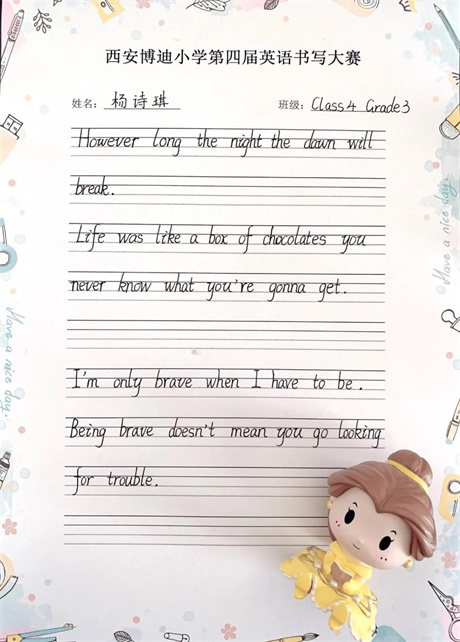 西安博迪小学第四届英语书写大赛
姓名: 杨诗琪 班级: Class 4 Grade 3
However long the night the dawn will
break.
Life was like a box of chocolates you
never know what you're gonna get.
I'm only brave when I have to be.
Being brave doesn't mean you go looking
for trouble.
Have a nice day.
Have a nice day.